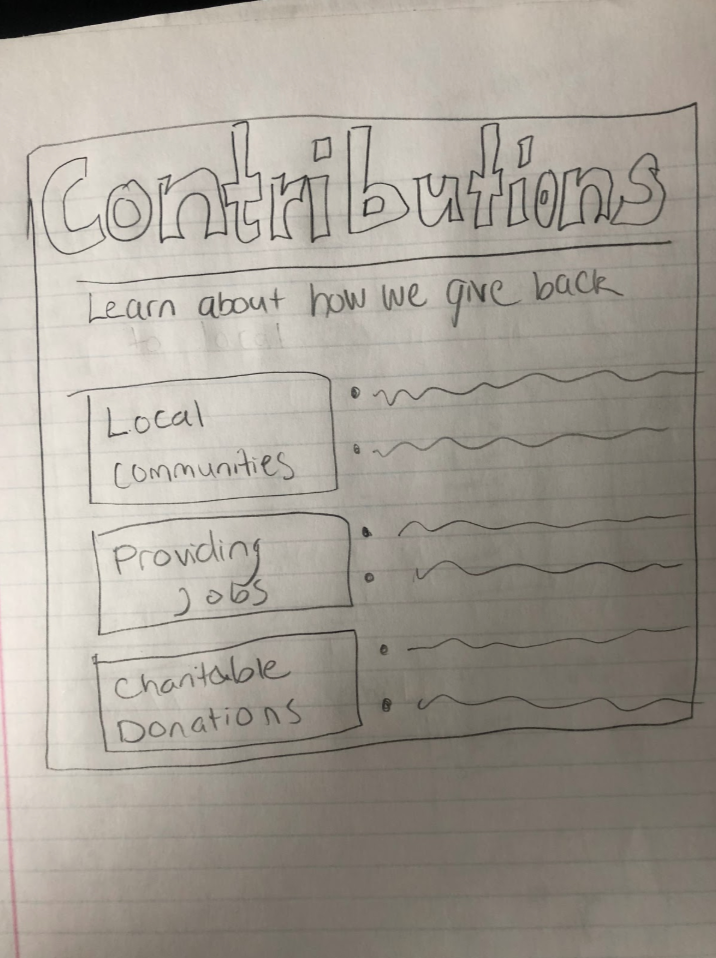 Contributions
Learn about how we give back
to local
Local
communities
Providing
Jobs
Charitable
Donations